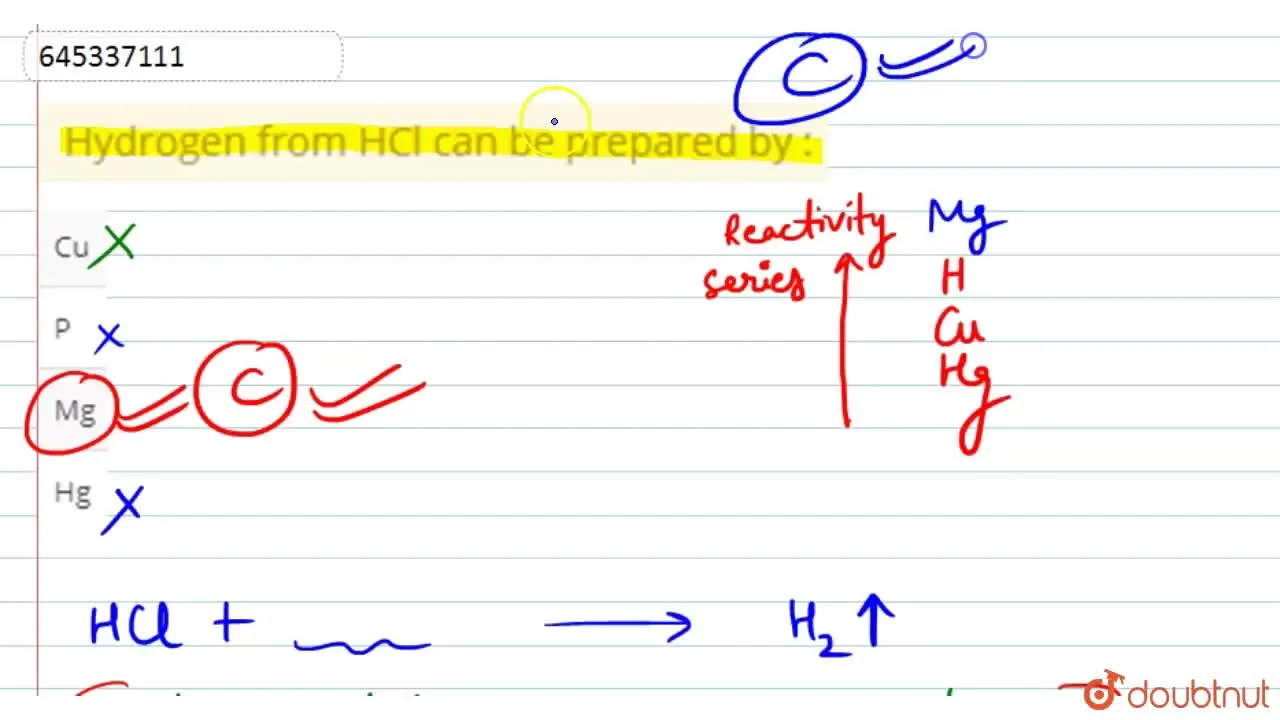 645337111
C
Hydrogen from HCl can be prepared by :
Reactivity
series
Mg
H
Cu
Hg
Cu X
P X
Mg C
Hg X
HCl + → H₂ ↑
doubtnut